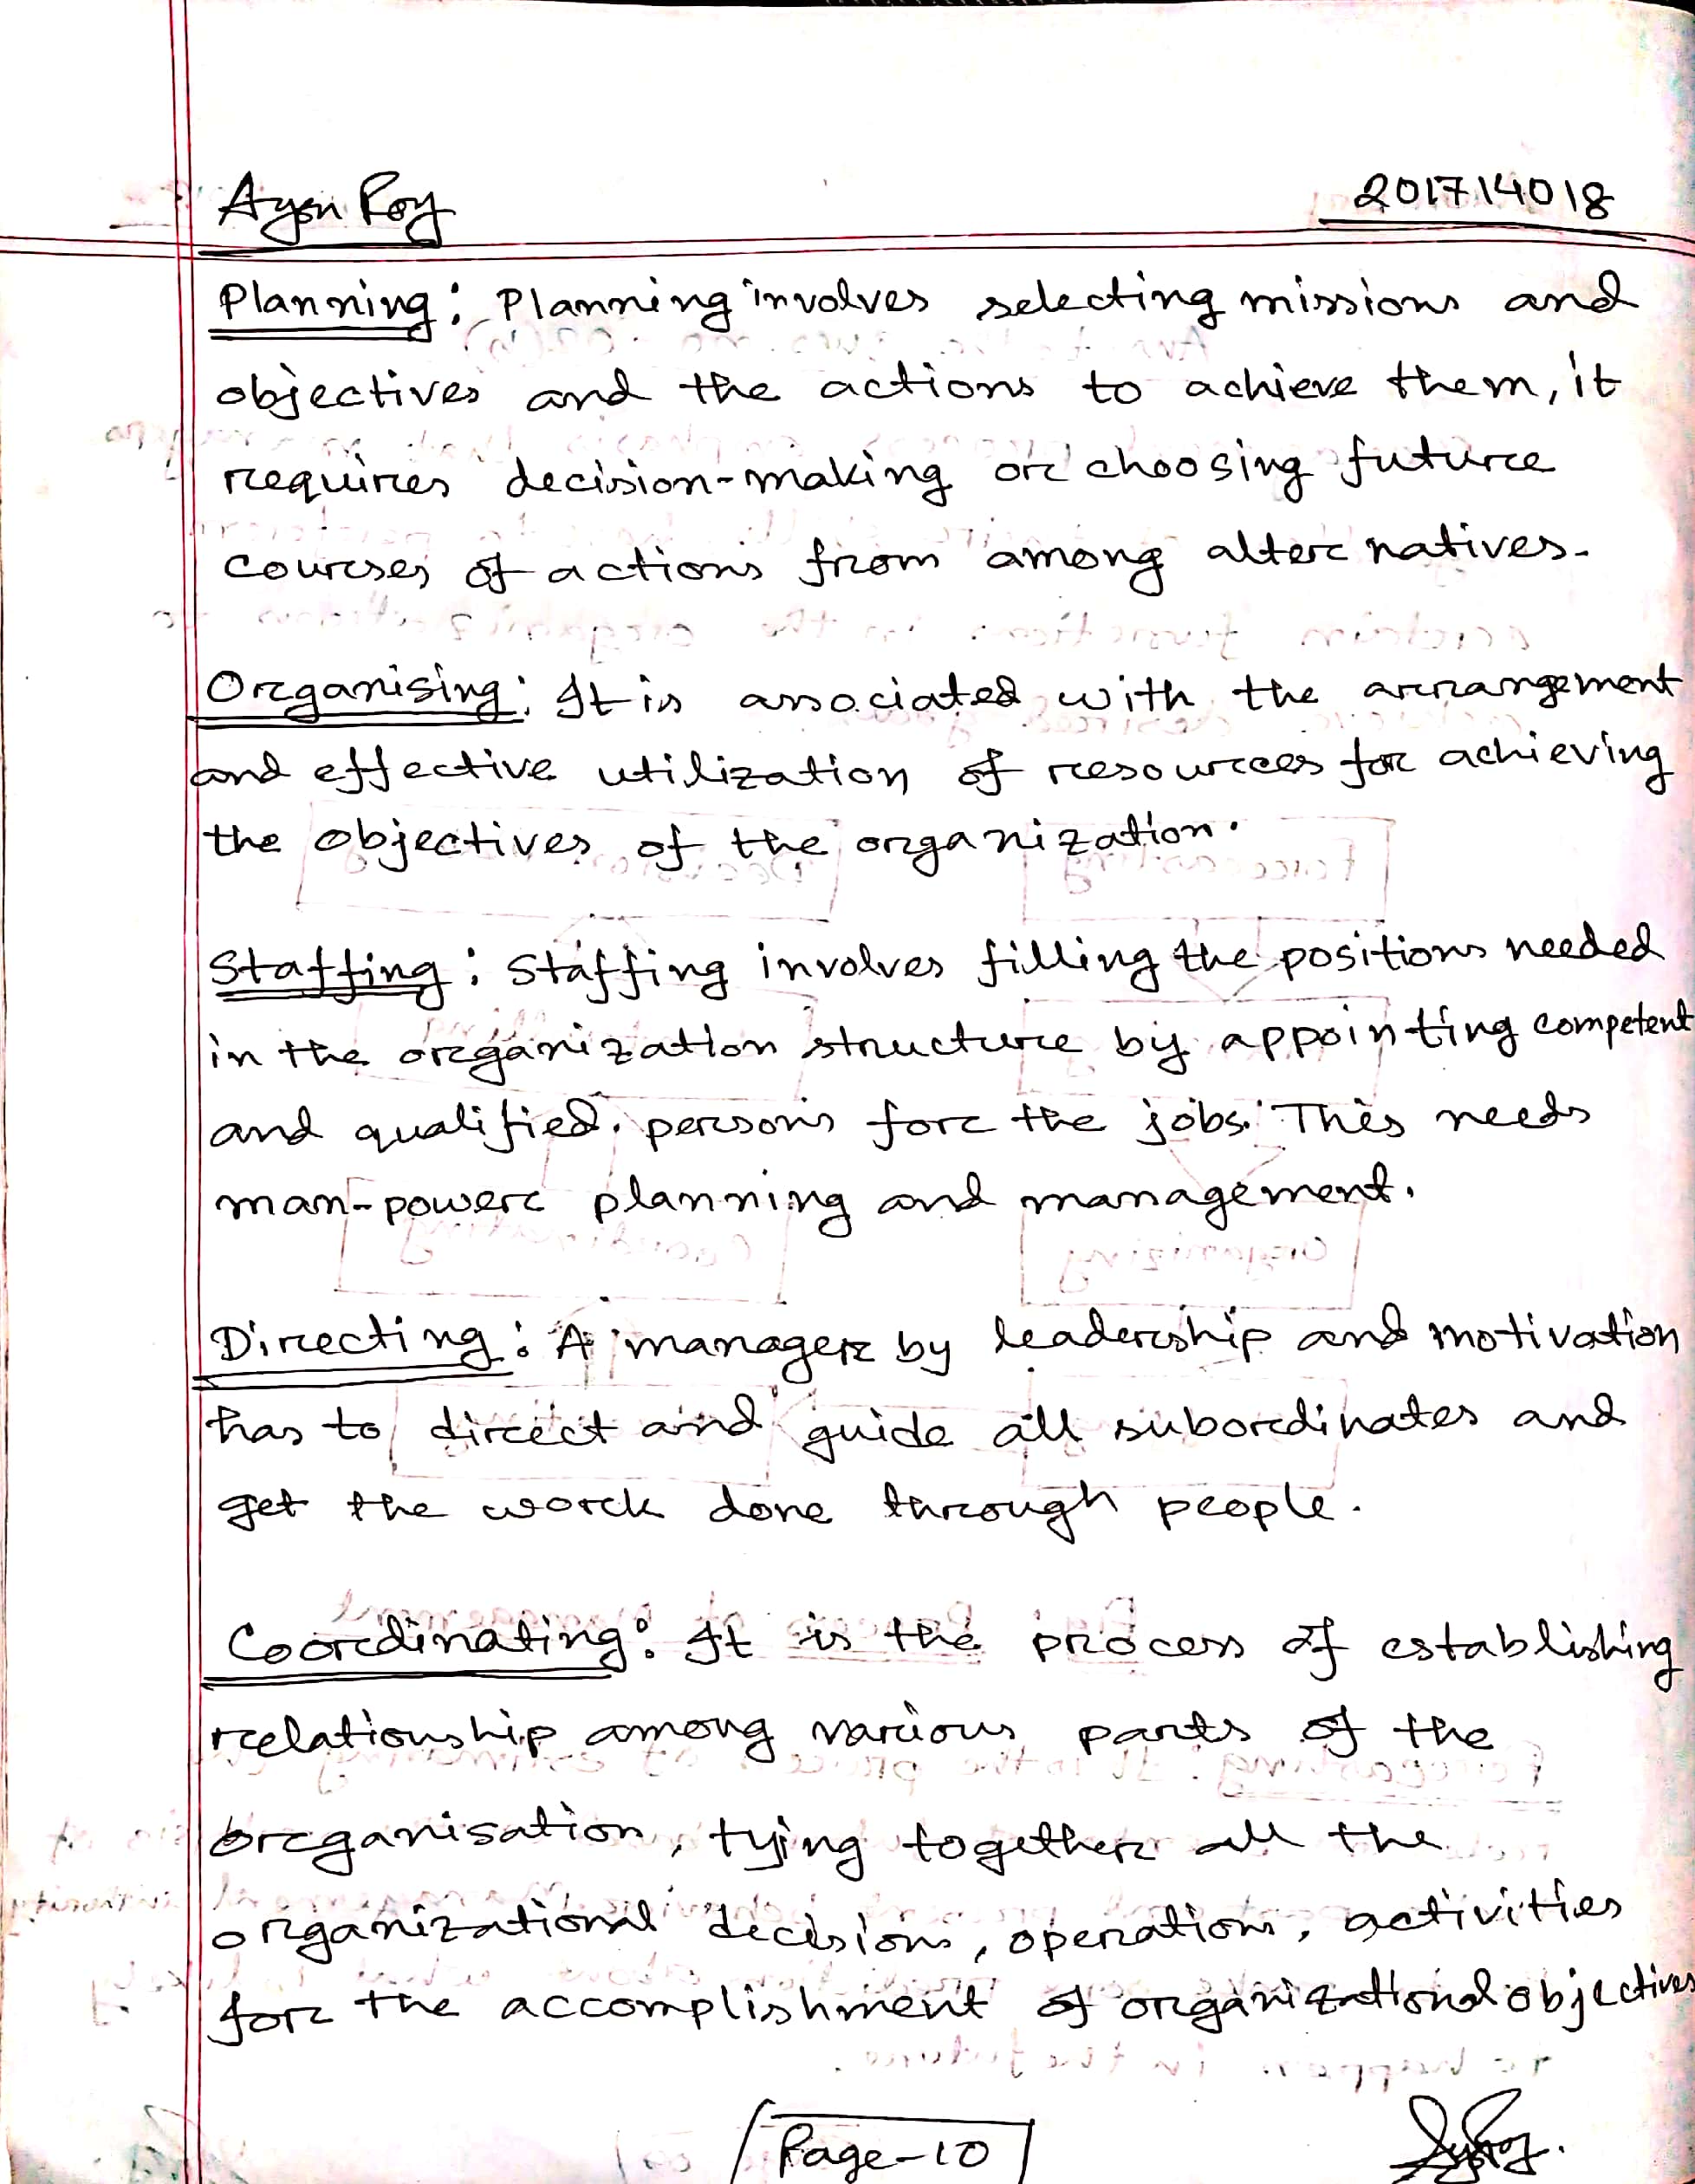 Ayon Roy 201714018
Planning: Planning involves selecting missions and
objectives and the actions to achieve them, it
requires decision-making or choosing future
courses of actions from among alternatives.
Organising: It is associated with the arrangement
and effective utilization of resources for achieving
the objectives of the organization.
Staffing: Staffing involves filling the positions needed
in the organization structure by appointing competent
and qualified persons for the jobs. This needs
man-power planning and management.
Directing: A manager by leadership and motivation
has to direct and guide all subordinates and
get the work done through people.
Coordinating: It is the process of establishing
relationship among various parts of the
organisation, tying together all the
organizational decisions, operations, activities
for the accomplishment of organizational objectives
Page-10